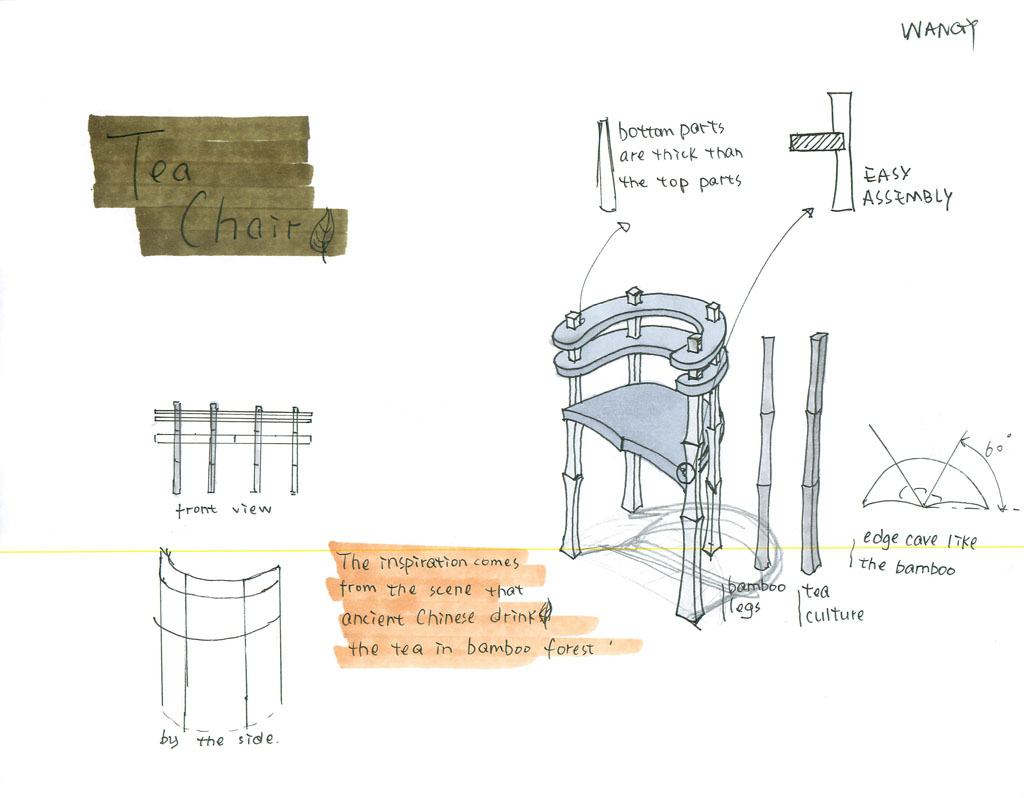 WANGY
Tea
Chair
bottom parts
are thick than
the top parts
EASY
ASSEMBLY
60°
edge cave like
the bamboo
front view
The inspiration comes
from the scene that
ancient Chinese drink
the tea in bamboo forest
bamboo
legs
tea
culture
by the side.